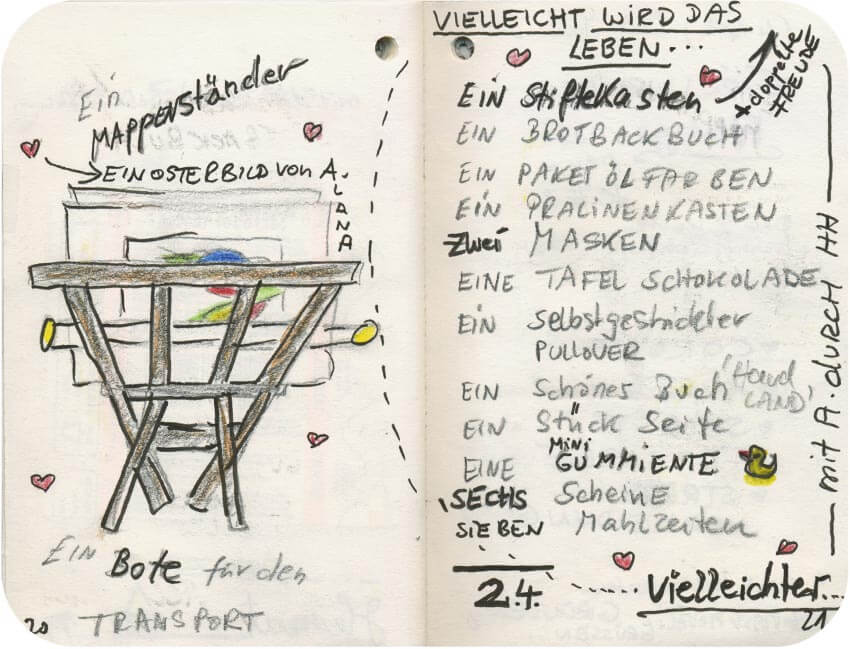 Ein
MAPPENständer
EIN OSTERBILD von A.
LANA
EIN Bote für den
TRANSPORT
20
VIELLEICHT WIRD DAS
LEBEN...
EIN Stiftekasten
+ doppelte
FREUDE
EIN BROTBACKBUCH
EIN PAKET ÖLFARBEN
EIN PRALINENKASTEN
Zwei MASKEN
EINE TAFEL SCHOKOLADE
EIN selbstgestrickter
PULLOVER
EIN Schönes Buch 'Hand
LAND'
EIN Stück Seife
EINE MINI GUMMIENTE
SECHS Scheine
SIEBEN Mahlzeiten
mit A. durch HH
24. Vielleichter...
21